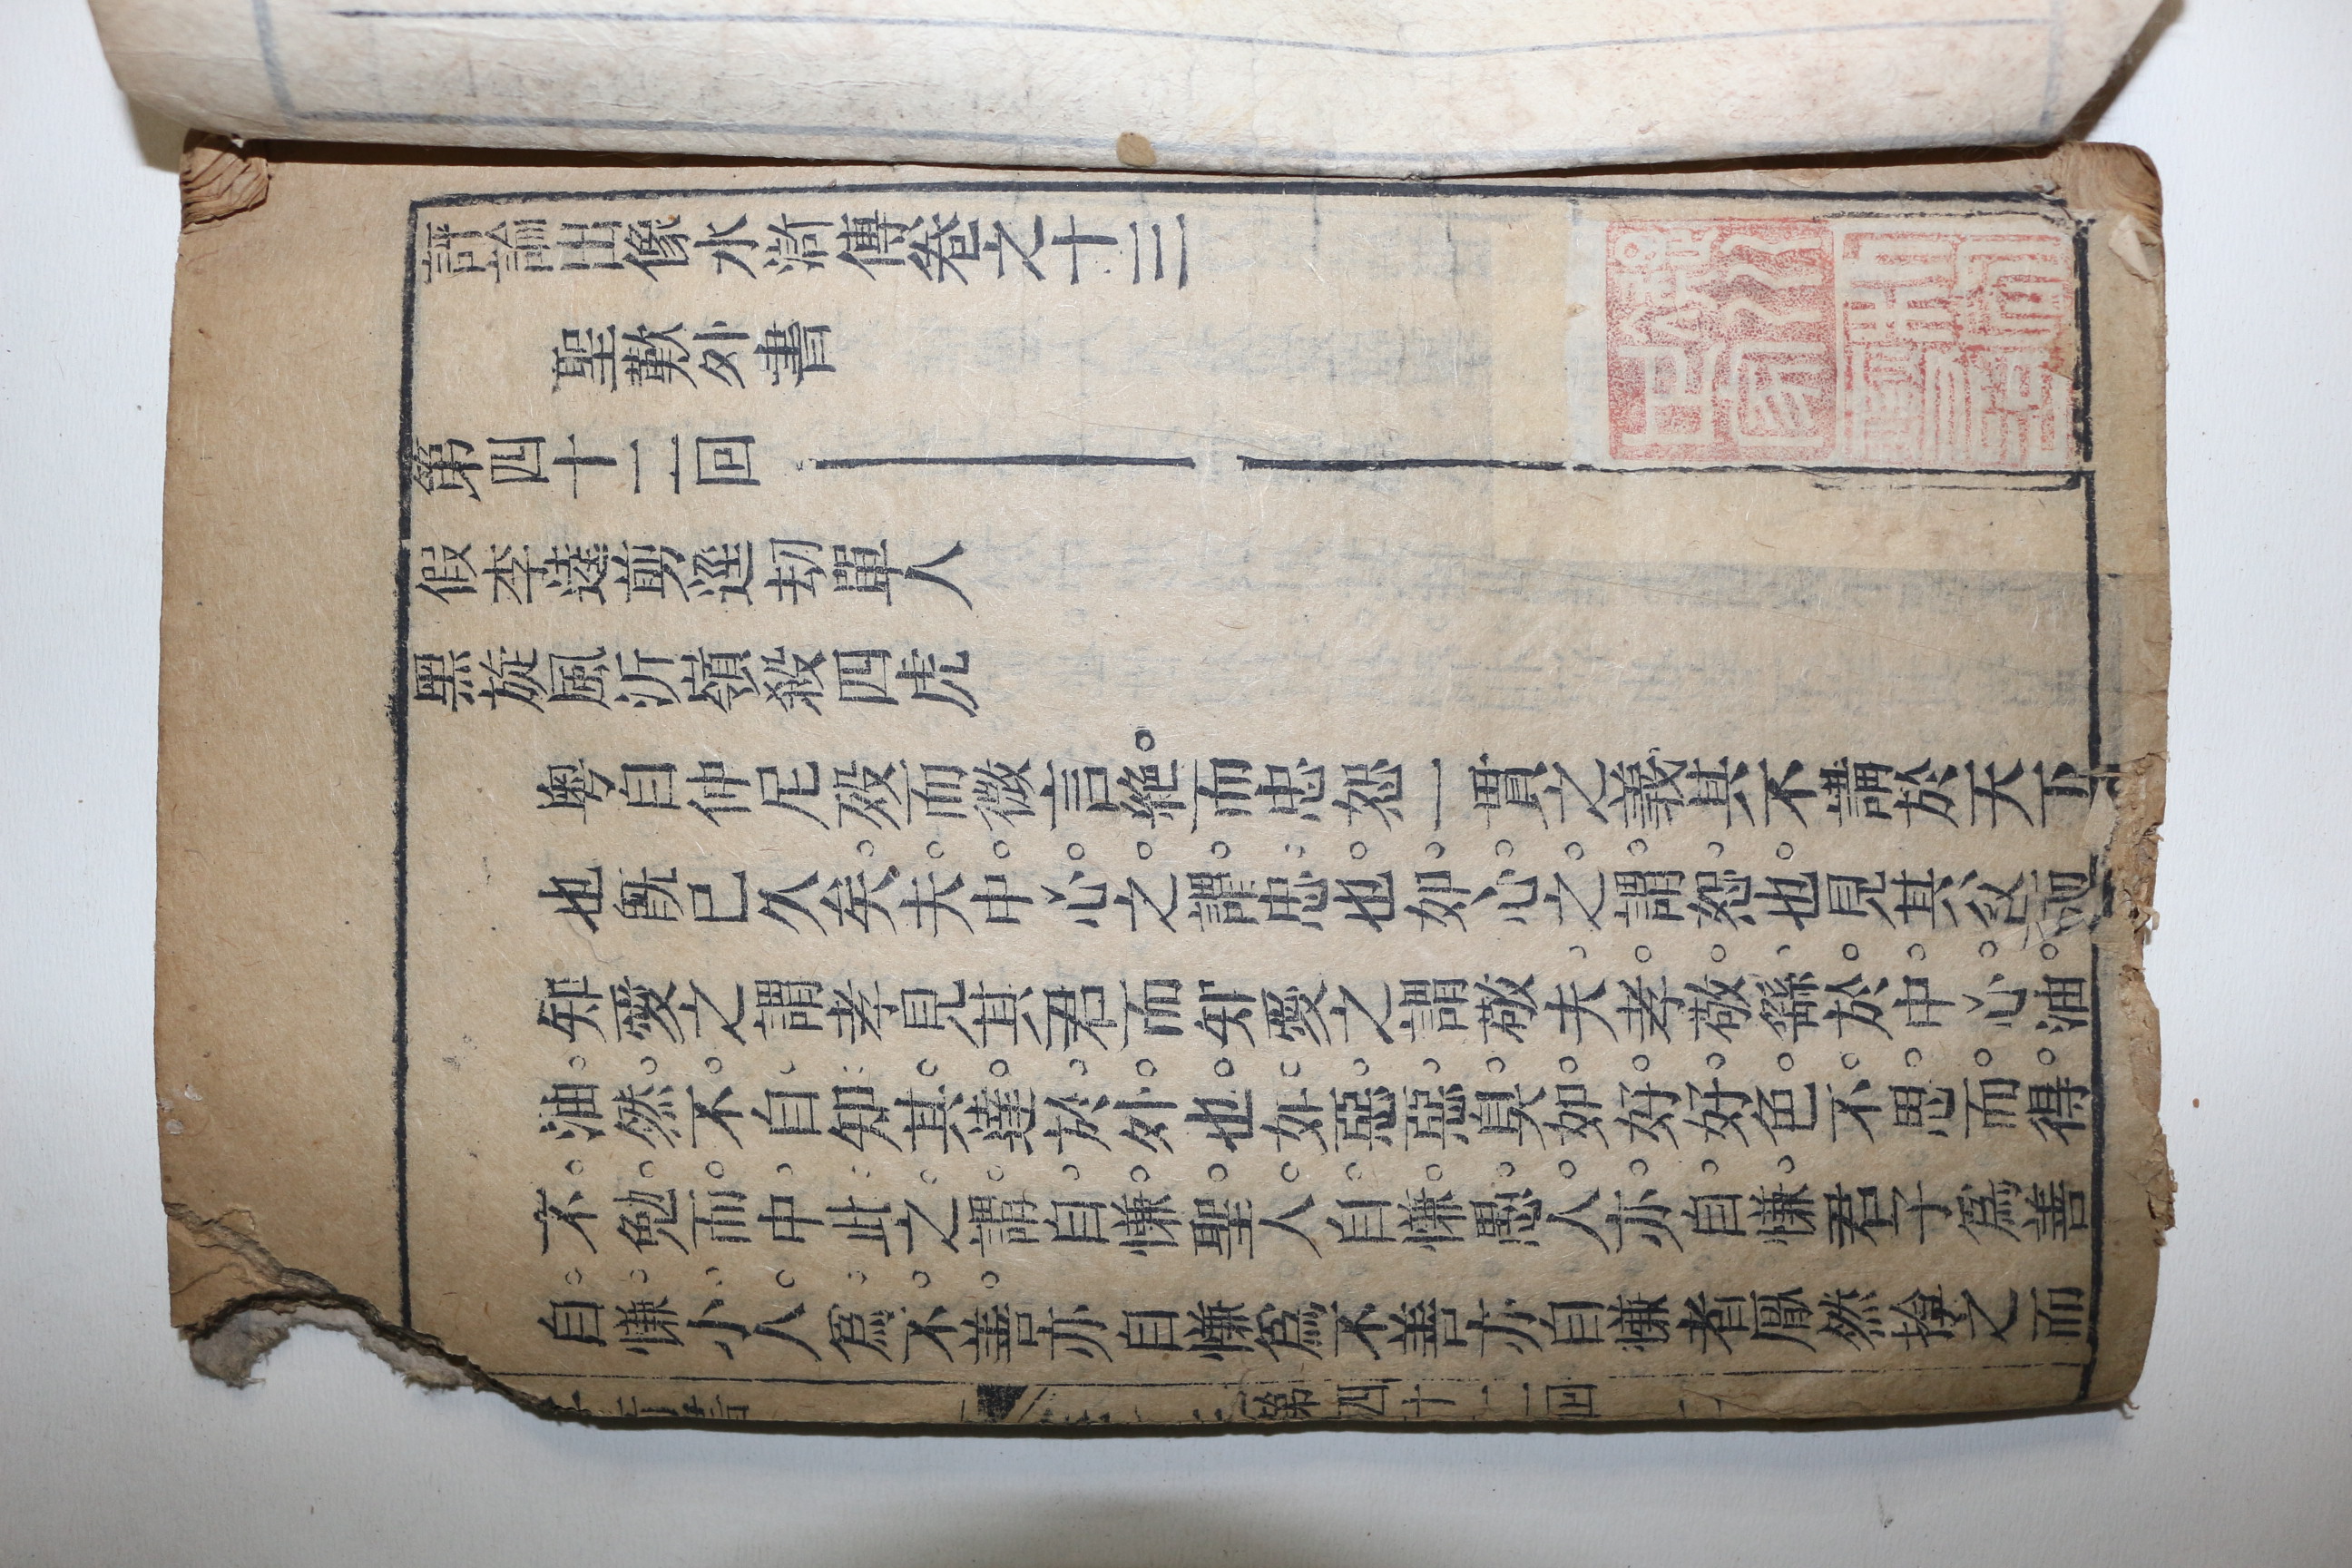 評論出像水滸傳卷之十三
聖歎外書
第四十二回
假李逵剪逕劫單人
黑旋風沂嶺殺四虎
粵自仲尼歿而微言絶而忠恕一貫之義其不講於天下
也旣已久矣夫中心之謂忠也如心之謂恕也見其父而
知愛之謂孝見其君而知愛之謂敬夫孝敬繇於中心油
油然不自知其達於外也如惡惡臭如好好色不思而得
不勉而中此之謂自慊聖人自慊愚人亦自慊君子爲善
自慊小人爲不善亦自慊爲不善亦自慊者厭然揜之而
第四十二回